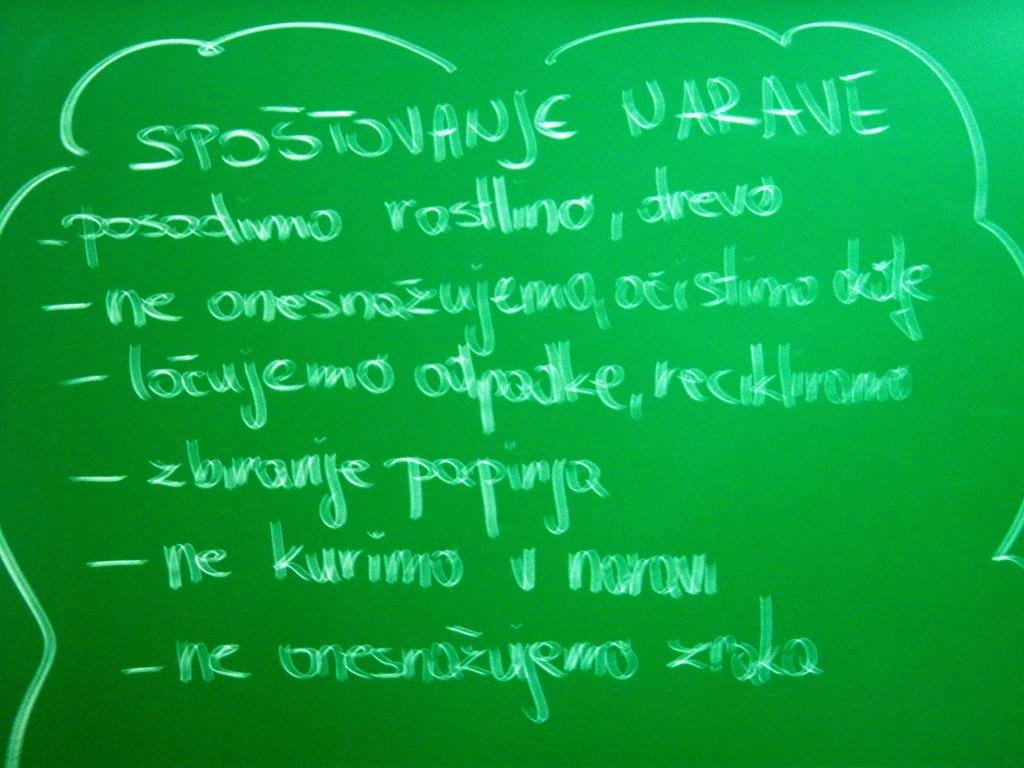 SPOŠTOVANJE NARAVE
- posadimo rastlino, drevo
- ne onesnažujemo, očistimo okolje
- ločujemo odpadke, recikliramo
- zbiranje papirja
- ne kurimo v naravi
- ne onesnažujemo zraka